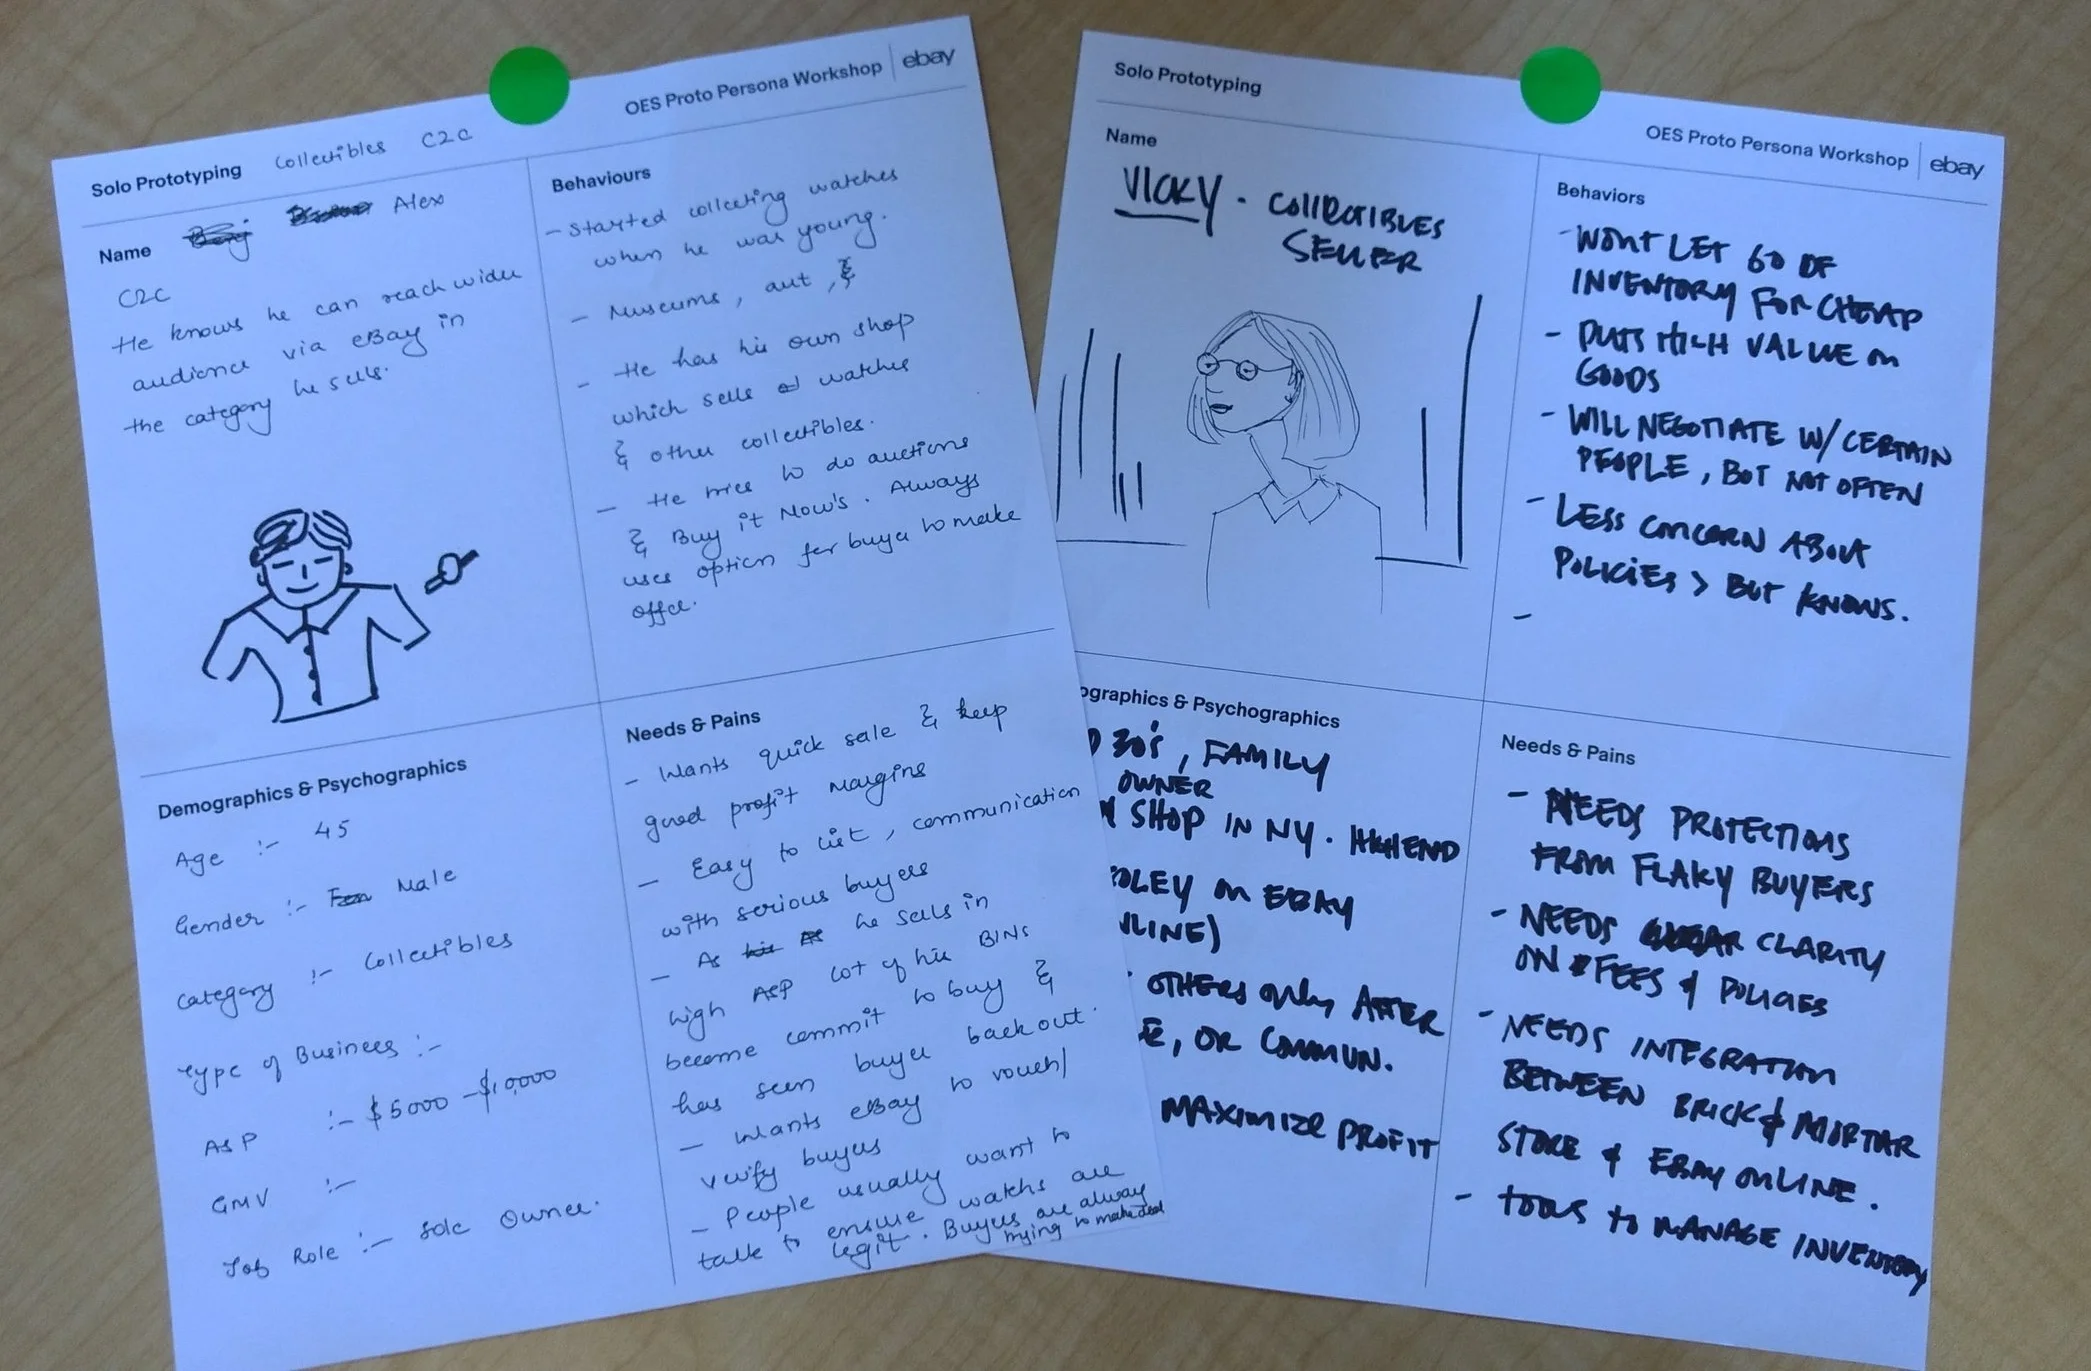 OES Proto Persona Workshop | ebay
Solo Prototyping Collectibles C2C
Name Alex
C2C
He knows he can reach wider
audience via eBay in
the category he sells.
Behaviours
- Started collecting watches
when he was young.
- Museums, art, &
- He has his own shop
which sells watches
& other collectibles.
- He tries to do auctions
& Buy it Now's. Always
uses option for buyer to make
offer.
Demographics & Psychographics
Age :- 45
Gender :- Male
Category :- Collectibles
Type of Business :-
ASP :- $5000 - $10,000
GMV :-
Job Role :- Sole Owner.
Needs & Pains
- Wants quick sale & keep
good profit margins
- Easy to list, communication
with serious buyers
- As he sells in
high ASP lot of his BINs
become commit to buy &
has seen buyer back out.
- Wants eBay to vouch/
verify buyers
- People usually want to
talk to ensure watchs are
legit. Buyers are always
trying to make deal
Solo Prototyping
OES Proto Persona Workshop | ebay
Name
VICKY - COLLECTIBLES
SELLER
Behaviors
- WONT LET GO OF
INVENTORY FOR CHEAP
- PUTS HIGH VALUE ON
GOODS
- WILL NEGOTIATE W/ CERTAIN
PEOPLE, BUT NOT OFTEN
- LESS CONCERN ABOUT
POLICIES > BUT KNOWS.
-
ographics & Psychographics
30's, FAMILY
OWNER
SHOP IN NY. HIGHEND
ON EBAY
LINE)
OTHERS ONLY AFTER
, OR COMMUN.
MAXIMIZE PROFIT
Needs & Pains
- NEEDS PROTECTIONS
FROM FLAKY BUYERS
- NEEDS CLARITY
ON FEES & POLICIES
- NEEDS INTEGRATION
BETWEEN BRICK & MORTAR
STORE & EBAY ONLINE.
- TOOLS TO MANAGE INVENTORY